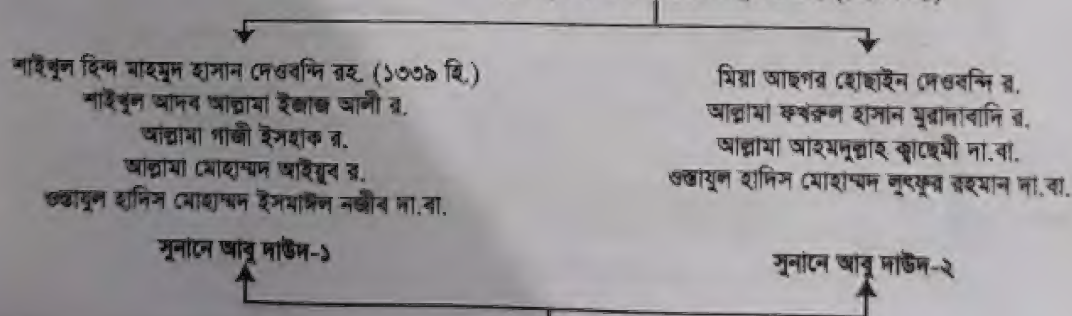 শাইখুল হিন্দ মাহমুদ হাসান দেওবন্দি রহ. (১৩৩৯ হি.)
শাইখুল আদব আল্লামা ইজাজ আলী র.
আল্লামা গাজী ইসহাক র.
আল্লামা মোহাম্মদ আইয়ুব র.
ওস্তাযুল হাদিস মোহাম্মদ ইসমাঈল নজীব দা.বা.
সুনানে আবু দাউদ-১
মিয়া আছগর হোছাইন দেওবন্দি র.
আল্লামা ফখরুল হাসান মুরাদাবাদি র.
আল্লামা আহমদুল্লাহ কাছেমী দা.বা.
ওস্তাযুল হাদিস মোহাম্মদ লুৎফুর রহমান দা.বা.
সুনানে আবু দাউদ-২